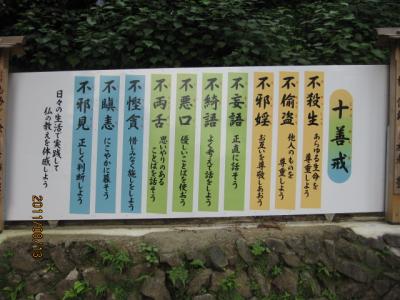 十善戒
不殺生
あらゆる生命を
尊重しよう
不偸盗
他人のものを
尊重しよう
不邪婬
お互いを尊敬しあおう
不妄語
正直に話そう
不綺語
よく考えて話をしよう
不悪口
優しいことばを使おう
不両舌
思いやりのある
ことばを話そう
不慳貪
惜しみなく施しをしよう
不瞋恚
にこやかに暮そう
不邪見
正しく判断しよう
日々の生活で実践して
仏の教えを体感しよう
2011/08/13